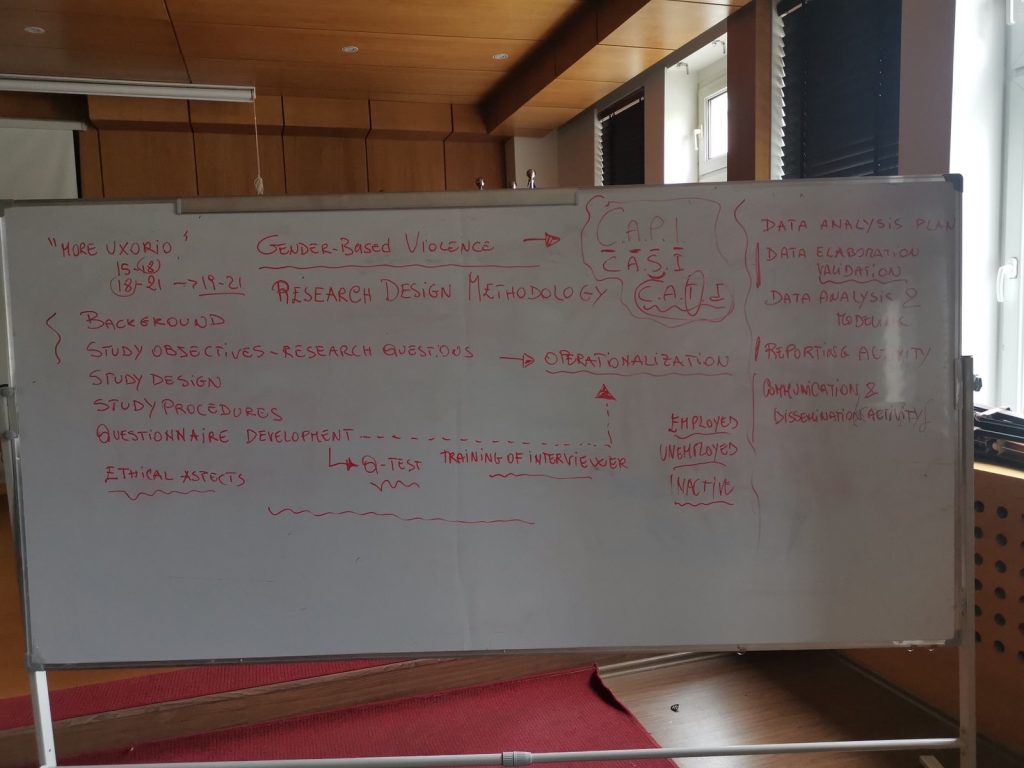 "MORE UXORIO"
15-(18)
(18)-21 → 19-21
GENDER-BASED VIOLENCE →
C.A.P.I
C A S I
C.A.T I
RESEARCH DESIGN METHODOLOGY
BACKGROUND
STUDY OBJECTIVES - RESEARCH QUESTIONS → OPERATIONALIZATION
STUDY DESIGN
STUDY PROCEDURES
QUESTIONNAIRE DEVELOPMENT
Q-TEST
TRAINING OF INTERVIEWER
ETHICAL ASPECTS
EMPLOYED
UNEMPLOYED
INACTIVE
DATA ANALYSIS PLAN
DATA ELABORATION
VALIDATION
DATA ANALYSIS &
REPORTING ACTIVITY
COMMUNICATION &
DISSEMINATION ACTIVITY